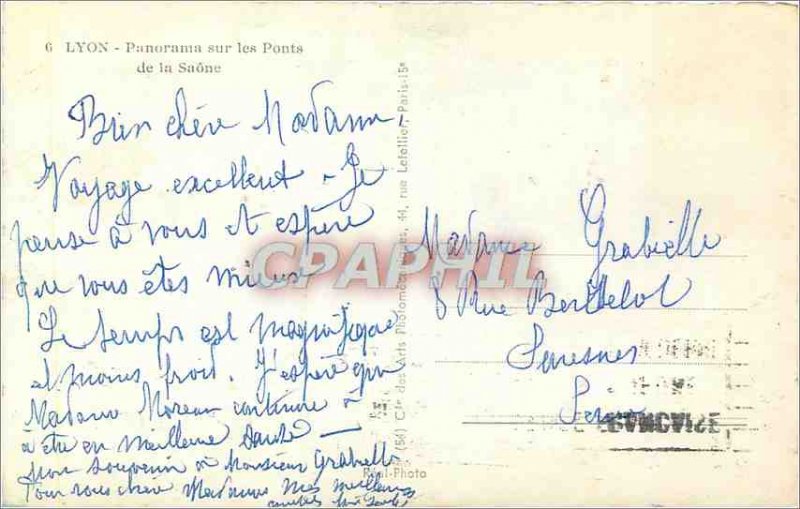 6 LYON - Panorama sur les Ponts
de la Saône
Bien chère Madame.
Voyage excellent - Je
pense à vous et espère
que vous êtes mieux
Le temps est magnifique
et moins froid. J'espère que
Madame Moreau continue
à être en meilleure santé —
mon souvenir à Monsieur Grabielle
Pour vous chère Madame mes meilleures
Madame Grabielle
8 Rue Berthelot
Suresnes
Seine
FRANCAISE
CPAPHIL
(54) Cie des Arts Photomécaniques, 44, rue Letellier, Paris-15e
Réal-Photo